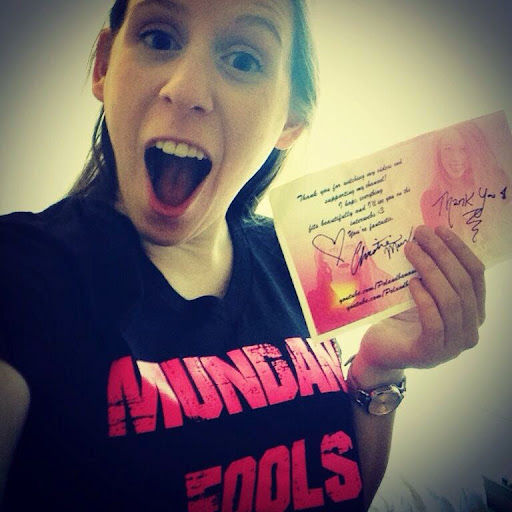 Thank you for watching my videos and
supporting my channel!
I hope everything
fits beautifully and I'll see you on the
interwebs :3
You're fantastic.
Thank You
youtube.com/
youtube.com/
MUNDAN
FOOLS